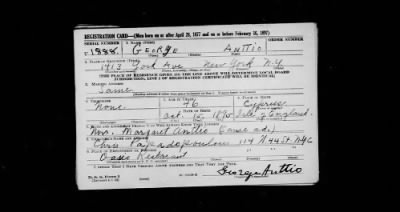 REGISTRATION CARD—(Men born on or after April 28, 1877 and on or before February 16, 1897)
SERIAL NUMBER 1. NAME (Print)
U 1888 George Anttio
2. PLACE OF RESIDENCE (Print)
1413 York Ave New York N.Y.
[THE PLACE OF RESIDENCE GIVEN ON THE LINE ABOVE WILL DETERMINE LOCAL BOARD
JURISDICTION; LINE 2 OF REGISTRATION CERTIFICATE WILL BE IDENTICAL]
3. MAILING ADDRESS
Same
4. TELEPHONE 5. AGE IN YEARS 6. PLACE OF BIRTH
None 46 Cyprus
DATE OF BIRTH
Oct. 15 1895 Isle of England
7. NAME AND ADDRESS OF PERSON WHO WILL ALWAYS KNOW YOUR ADDRESS
Mrs. Margaret Anttio (same ad.)
8. EMPLOYER'S NAME AND ADDRESS
Chris Papadopoulous 114 W 44 St NYC
9. PLACE OF EMPLOYMENT OR BUSINESS
Oasis Restaurant
I AFFIRM THAT I HAVE VERIFIED ABOVE ANSWERS AND THAT THEY ARE TRUE.
D. S. S. Form 1
George Anttio